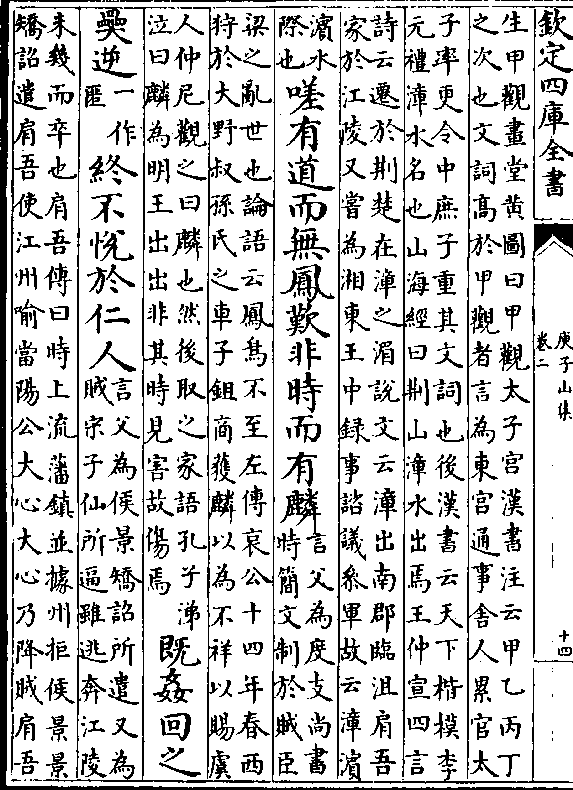 欽定四庫全書
庚子山集
卷二
十四
生甲觀畫堂黄圖曰甲觀太子宫漢書注云甲乙丙丁
之次也文詞髙於甲觀者言為東宫通事舍人累官太
子率更令中庶子重其文詞也後漢書云天下楷模李
元禮漳水名也山海經曰荆山漳水出焉王仲宣四言
詩云遷於荆楚在漳之湄說文云漳出南郡臨沮肩吾
家於江陵又嘗為湘東王中録事諮議叅軍故云漳濵
濵水
際也
嗟有道而無鳳歎非時而有麟
言父為度支尚書
時簡文制於賊臣
梁之亂世也論語云鳳鳥不至左傳哀公十四年春西
狩於大野叔孫氏之車子鉏商獲麟以為不祥以賜虞
人仲尼觀之曰麟也然後取之家語孔子涕
泣曰麟為明王出出非其時見害故傷焉
既姦回之
奰逆
一作
匿
終不悅於仁人
言父為侯景矯詔所遣又為
賊宋子仙所逼雖逃奔江陵
未幾而卒也肩吾傳曰時上流藩鎮並據州拒侯景景
矯詔遣肩吾使江州喻當陽公大心大心乃降賊肩吾